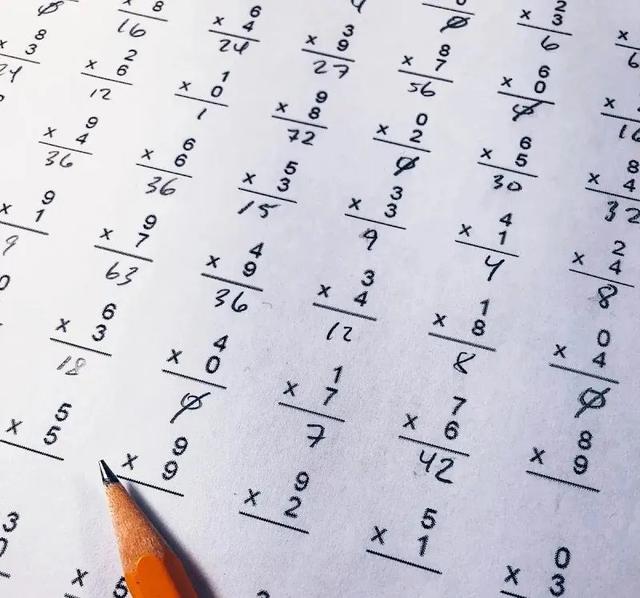 2
x 3
0 6
8 6 3 8 6
x 4 x 9 x 7 x 0
16 24 27 56 0
8 2 1 9 0 6 8
x 3 x 6 x 0 x 8 x 2 x 5 x 4
24 12 1 72 0 30 32
9 6 5 3 4 2
x 4 x 6 x 3 x 3 x 1 x 4
36 36 15 9 4 8
9 9 4 3 1 0
x 1 x 7 x 9 x 4 x 8 x 4
9 63 36 12 8 0
6 4 1 7 8
x 3 x 0 x 7 x 6 x 9
18 0 7 42
5 9 9 5 0
x 5 x 9 x 2 x 1 x 3
3
x 5